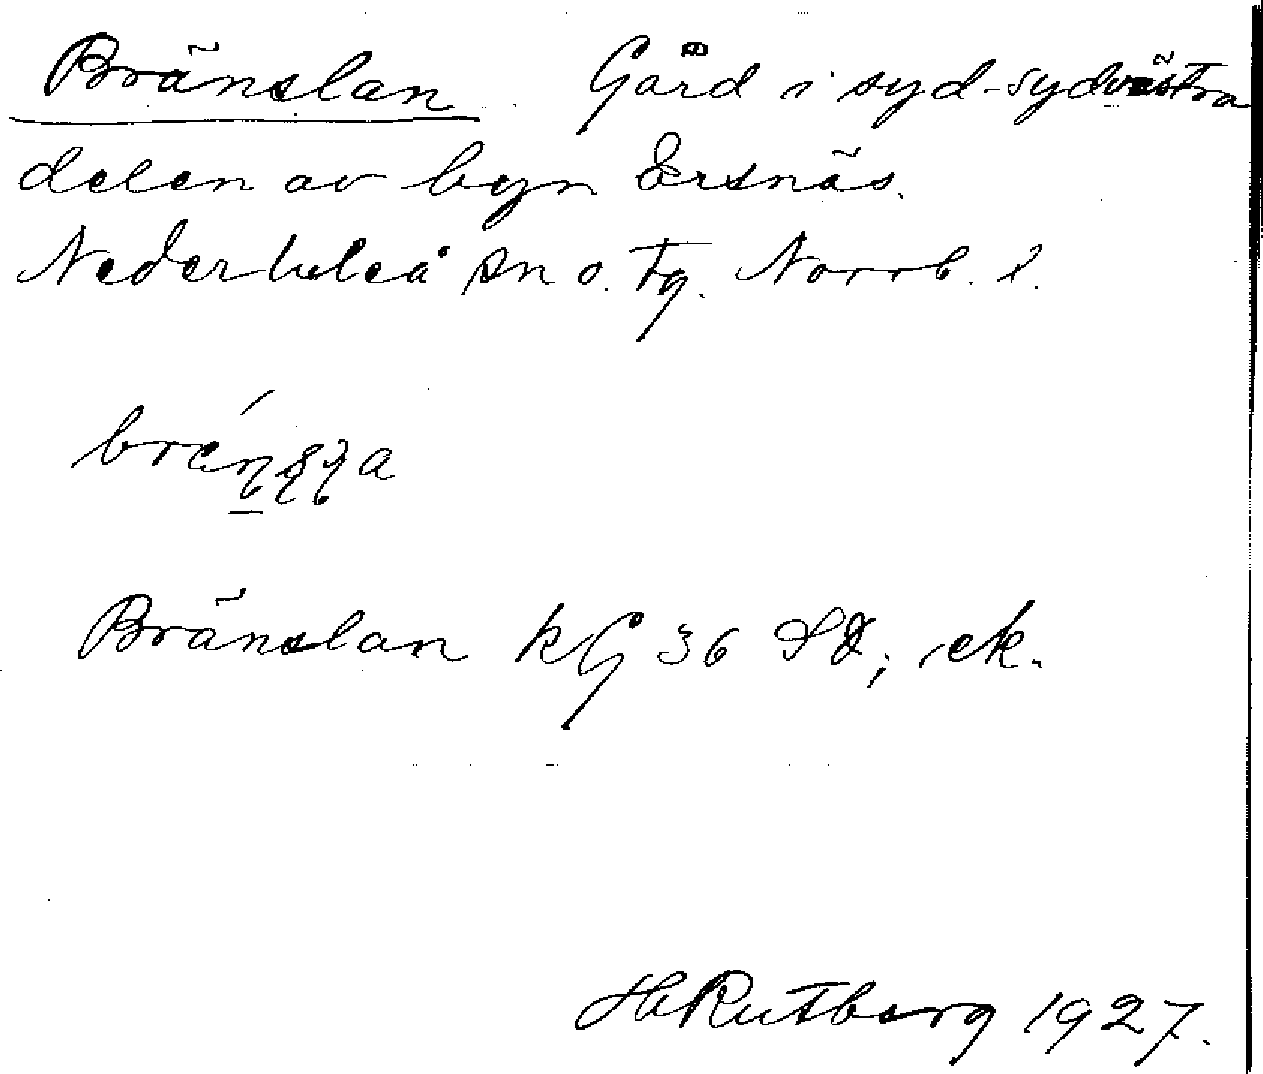 Bränslan. Gård i syd-sydvästra
delen av byn Ersnäs.
Nederluleå sn o. tg. Norrb. l.
Bränslan kG 36 SÖ, ek.
H Rutberg 1927.